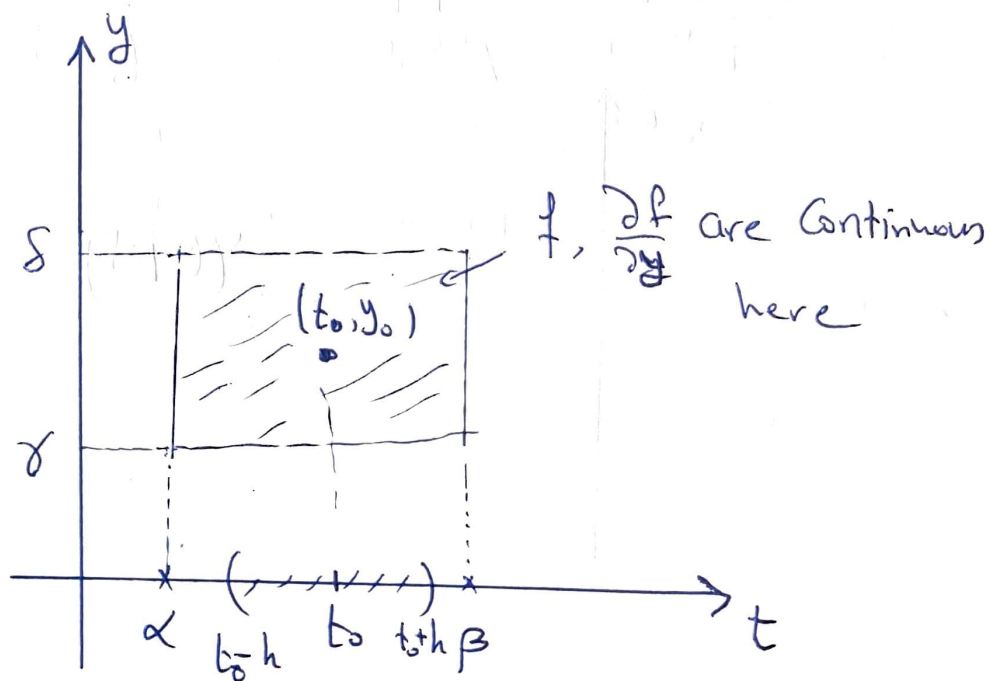 y
f, ∂f/∂y are Continuous
here
δ
(t₀, y₀)
γ
α
t₀-h
t₀
t₀+h
β
t